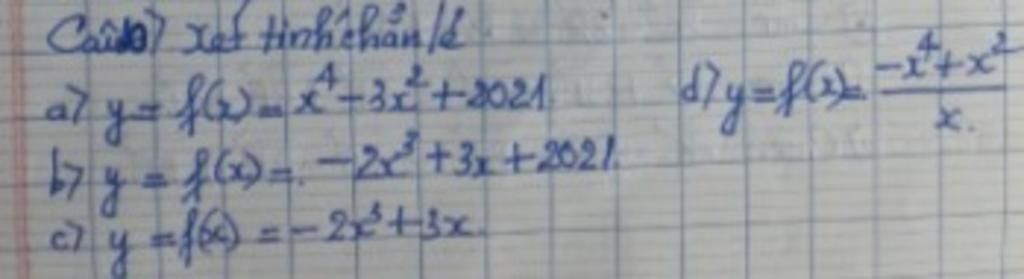 Câu 10) xét tính chẵn/lẻ
a) y = f(x) = x⁴ - 3x² + 2021
b) y = f(x) = - 2x³ + 3x + 2021.
c) y = f(x) = - 2x³ + 3x.
d) y = f(x) = (-x⁴ + x²)/x.